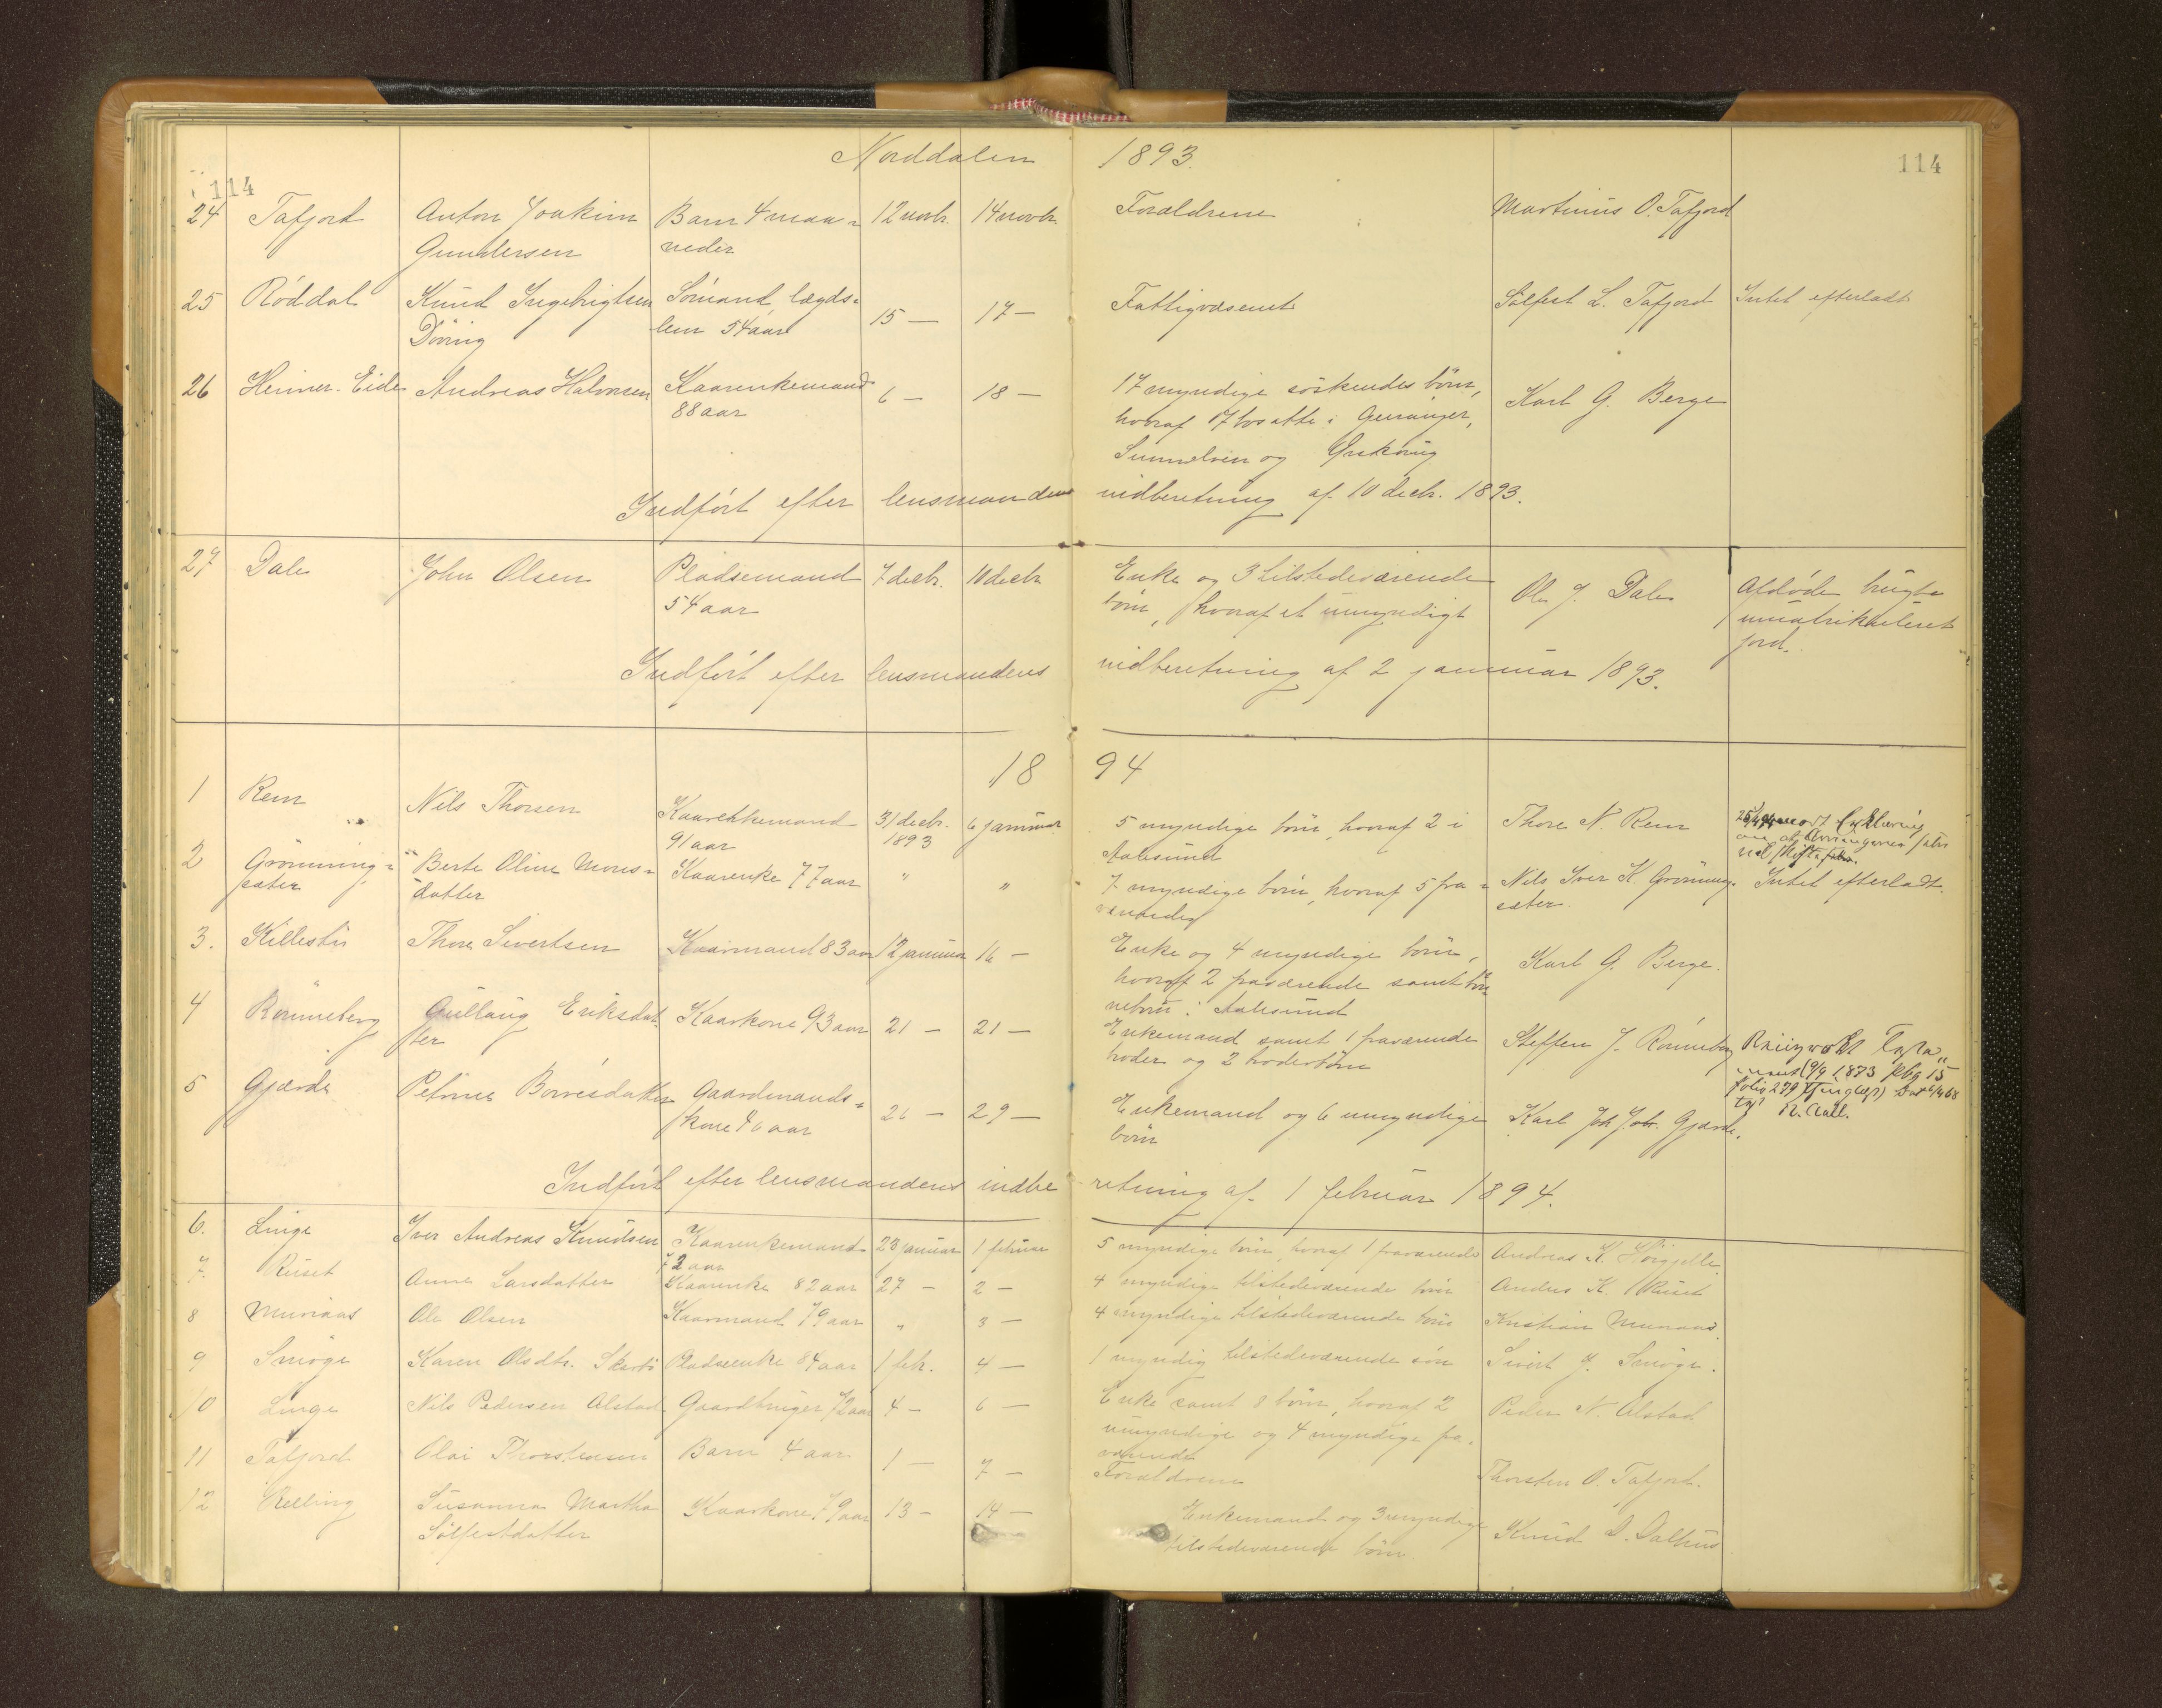 Norddalen 1893.
114
114
24 Tafjord Anton Joakim Barn 4 maa- 12 novbr. 14 novbr. Forældrene Martinus O. Tafjord
Gundersen neder
25 Röddal Knud Ingebrigtsen Sömand, lægds- 15 — 17 — Fattigvæsenet Sölfest L. Tafjord Intet efterladt
lem 54 aar
26 Eide Andreas Halvorsen Kaarenkemand 6 — 18 — 17 myndige söskendes börn, Karl G. Berge
88 aar hvoraf 17 bosatte i Geiranger,
Sunnelven og Örskoug
Indfört efter lensmandens indberetning af 10 decbr. 1893.
27 Dale John Olsen Pladsemand 7 decbr. 10 decbr Enke og 3 tilstedeværende Ole J. Dale Afdöde brugte
54 aar börn, hvoraf et umyndigt umatrikuleret
jord.
Indfört efter lensmandens indberetning af 2 januar 1893.
1894
1 Rem Nils Thorsen Kaarenkemand 31 decbr. 6 januar 5 myndige börn, hvoraf 2 i Thore N. Rem
91 aar 1893 Aalesund
2 Grönning- Berte Oline Mons- Kaarenke 77 aar " " 7 myndige börn, hvoraf 5 fra- Nils Iver K. Grönning- Intet efterladt.
sæter datter værende sæter
3. Killesti Thore Sivertsen Kaarmand 83 aar 12 januar 16 — Enke og 4 myndige börn, Karl G. Berge.
hvoraf 2 fraværende samt bör-
nebörn i Aalesund
4 Rönneberg Gullaug Eriksdat- Kaarkone 93 aar 21 — 21 — Enkemand samt 1 fraværende Steffen J. Rönneberg
ter broder og 2 broderbörn
1873 pbg 15
folio 279
5 Gjærde Petrine Börresdatter Gaardmands- 26 — 29 — Enkemand og 6 umyndige Karl Joh. Gjærde.
kone 46 aar börn
Indfört efter lensmandens indberetning af 1 februar 1894.
6. Linge Iver Andreas Knudsen Kaarenkemand 28 januar 1 februar 5 myndige börn, hvoraf 1 fraværende Andreas K.
72 aar
7. Ruset Anne Larsdatter Kaarenke 82 aar 27 — 2 — 4 myndige tilstedeværende börn Anders K. Ruset
8 Muriaas Ole Olsen Kaarmand 79 aar " 3 — 4 myndige tilstedeværende börn Kristian Muriaas.
9 Smöge Karen Olsdtr. Pladsenke 84 aar 1 febr. 4 — 1 myndig tilstedeværende sön Sivert J. Smöge.
10 Linge Nils Pedersen Alstad Gaardbruger 72 aar 4 — 6 — Enke samt 8 börn, hvoraf 2 Peder N. Alstad
umyndige og 4 myndige fra-
værende
11 Tafjord Olai Thorstensen Barn 4 aar 1 — 7 — Forældrene Thorsten O. Tafjord.
12 Relling Susanna Martha Kaarkone 79 aar 13 — 14 — Enkemand og 3 myndige Knud D. Dalhus
Sölfestdatter tilstedeværende börn